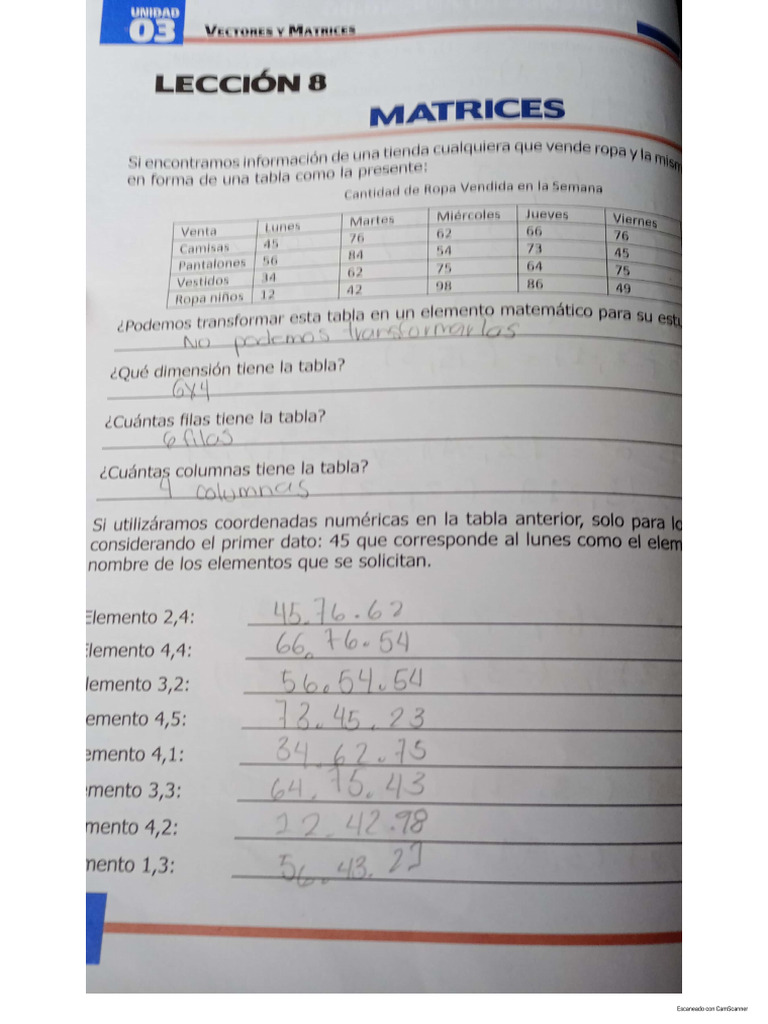 UNIDAD
03
VECTORES Y MATRICES
LECCIÓN 8
MATRICES
Si encontramos información de una tienda cualquiera que vende ropa y la mism
en forma de una tabla como la presente:
Cantidad de Ropa Vendida en la Semana
Venta Lunes Martes Miércoles Jueves Viernes
Camisas 45 76 62 66 76
Pantalones 56 84 54 73 45
Vestidos 34 62 75 64 75
Ropa niños 12 42 98 86 49
¿Podemos transformar esta tabla en un elemento matemático para su estu
No podemos transformarlas
¿Qué dimensión tiene la tabla?
6x4
¿Cuántas filas tiene la tabla?
6 filas
¿Cuántas columnas tiene la tabla?
4 columnas
Si utilizáramos coordenadas numéricas en la tabla anterior, solo para lo
considerando el primer dato: 45 que corresponde al lunes como el elem
nombre de los elementos que se solicitan.
Elemento 2,4: 45.76.62
Elemento 4,4: 66.76.54
lemento 3,2: 56.54.54
emento 4,5: 73.45.23
emento 4,1: 34.62.75
mento 3,3: 64.75.43
mento 4,2: 22.42.98
mento 1,3: 56.43.22
Escaneado con CamScanner